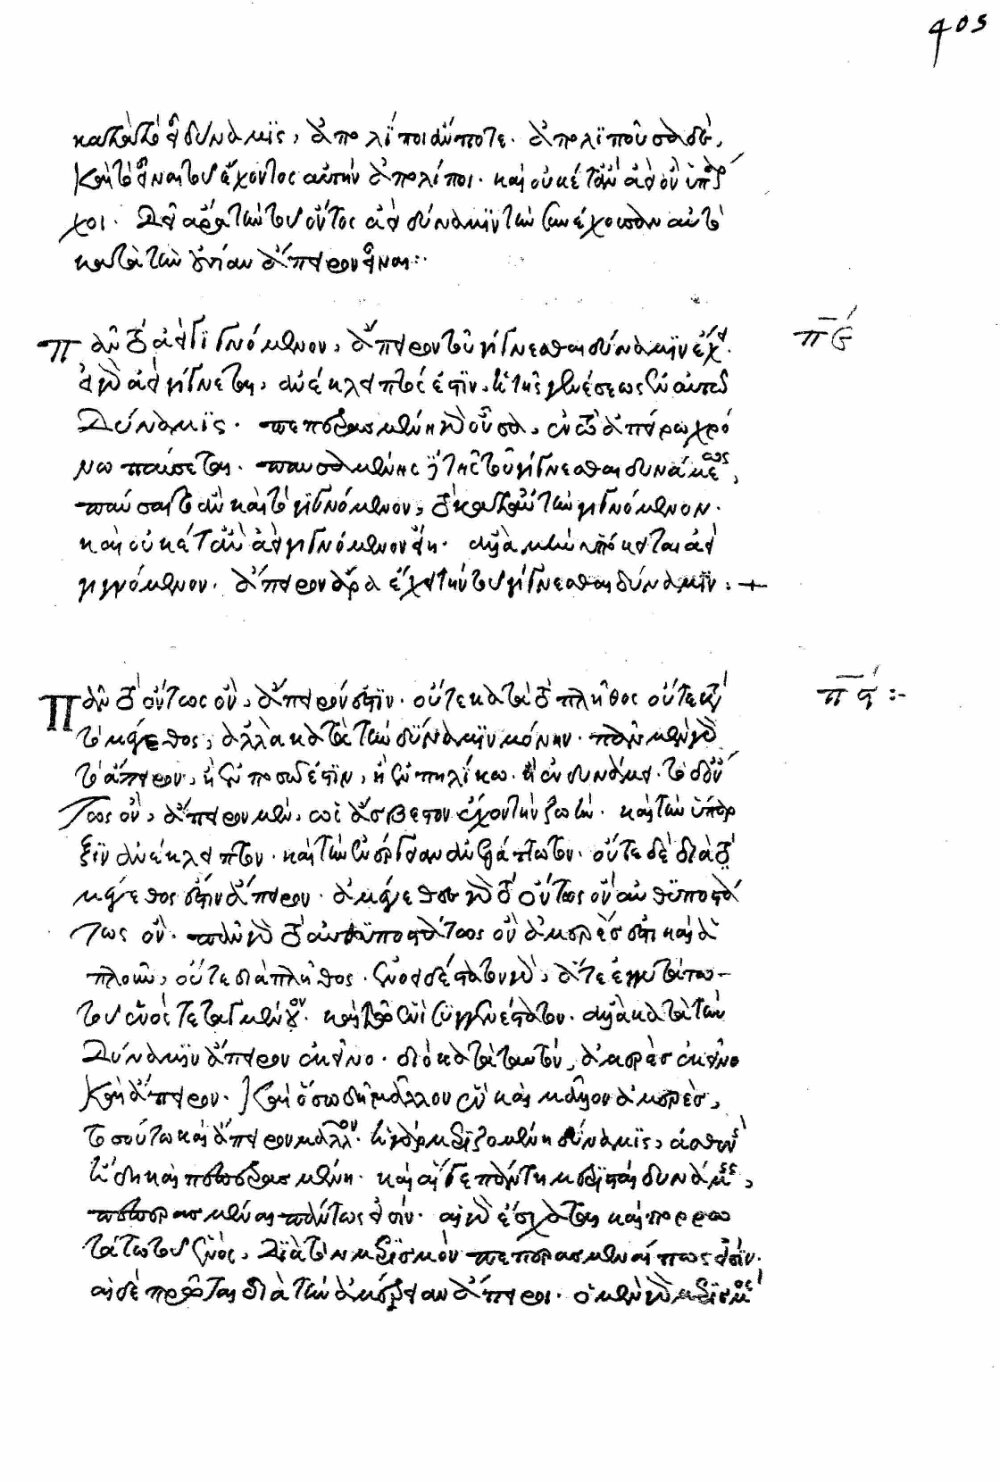 405
κατὰ τὸ εἶναι δύναμις, ἀπολίποι ἄν ποτε. ἀπολιποῦσα δὲ,
καὶ τὸ εἶναι τοῦ ἔχοντος αὐτὴν ἀπολίποι. καὶ οὐκέτ' ἂν ἀεὶ ὂν ὑπάρ
χοι. δεῖ ἄρα τὴν τοῦ ὄντος ἀεὶ δύναμιν τὴν συνέχουσαν αὐτὸ
κατὰ τὴν οὐσίαν ἄπειρον εἶναι:·
Πᾶν τὸ ἀεὶ γιγνόμενον, ἄπειρον τοῦ γίγνεσθαι δύναμιν ἔχει. πε
εἰ γὰρ ἀεὶ γίγνεται, ἀνέκλειπτός ἐστιν ἡ τῆς γενέσεως ἐν αὐτῷ
δύναμις. πεπερασμένη γὰρ οὖσα, ἐν τῷ ἀπείρῳ χρό
νῳ παύσεται. παυσαμένης δὲ τῆς τοῦ γίγνεσθαι δυνάμεως,
παύσαιτο ἂν καὶ τὸ γιγνόμενον, τὸ κατ' αὐτὴν γιγνόμενον.
καὶ οὐκέτ' ἂν ἀεὶ γιγνόμενον εἴη. ἀλλὰ μὴν ὑπόκειται ἀεὶ
γιγνόμενον. ἄπειρον ἄρα ἔχει τὴν τοῦ γίγνεσθαι δύναμιν:
Πᾶν τὸ ὄντως ὂν, ἄπειρόν ἐστιν. οὔτε κατὰ τὸ πλῆθος οὔτε κατὰ πϛ:-
τὸ μέγεθος, ἀλλὰ κατὰ τὴν δύναμιν μόνην. πᾶν μὲν γὰρ
τὸ ἄπειρον, ἢ ἐν ποσῷ ἐστιν, ἢ ἐν πηλίκῳ. ἢ ἐν δυνάμει. τὸ δὲ ὄν
τως ὂν, ἄπειρον μὲν, ὡς ἄσβεστον ἔχον τὴν ζωὴν. καὶ τὴν ὕπαρ
ξιν ἀνέκλειπτον. καὶ τὴν ἐνέργειαν ἀνελάττωτον. οὔτε δὲ διὰ τὸ
μέγεθός ἐστιν ἄπειρον. ἀμέγεθες γὰρ τὸ ὄντως ὂν αὐθυποστά
τως ὄν. πᾶν γὰρ τὸ αὐθυποστάτως ὂν ἀμερές ἐστι καὶ ἁ
πλοῦν, οὔτε διὰ πλῆθος. ἑνοειδέστατον γὰρ, ἅτε ἐγγυτάτω
τοῦ ἑνὸς τεταγμένον. καὶ τῷ ἑνὶ συγγενέστατον. ἀλλὰ κατὰ τὴν
δύναμιν ἄπειρον ἐκεῖνο. διὸ κατὰ ταὐτόν, ἀμερὲς ἐκεῖνο
καὶ ἄπειρον. καὶ ὅσῳ δὴ μᾶλλον ἓν καὶ μᾶλλον ἀμερὲς,
τοσούτῳ καὶ ἄπειρον μᾶλλον. ἡ γὰρ μεριζομένη δύναμις, ἀσθενὴς
ἤδη καὶ πεπερασμένη. καὶ αἵ γε πάντῃ μερισταὶ δυνάμεις,
πεπερασμέναι πάντως εἰσίν. αἱ γὰρ ἔσχαται καὶ πορρω
τάτω τοῦ ἑνὸς, διὰ τὸν μερισμὸν πεπερασμέναι πως εἰσίν.
αἱ δὲ πρῶται διὰ τὴν ἀμέρειαν ἄπειροι. ὁ μὲν γὰρ μερισμὸς